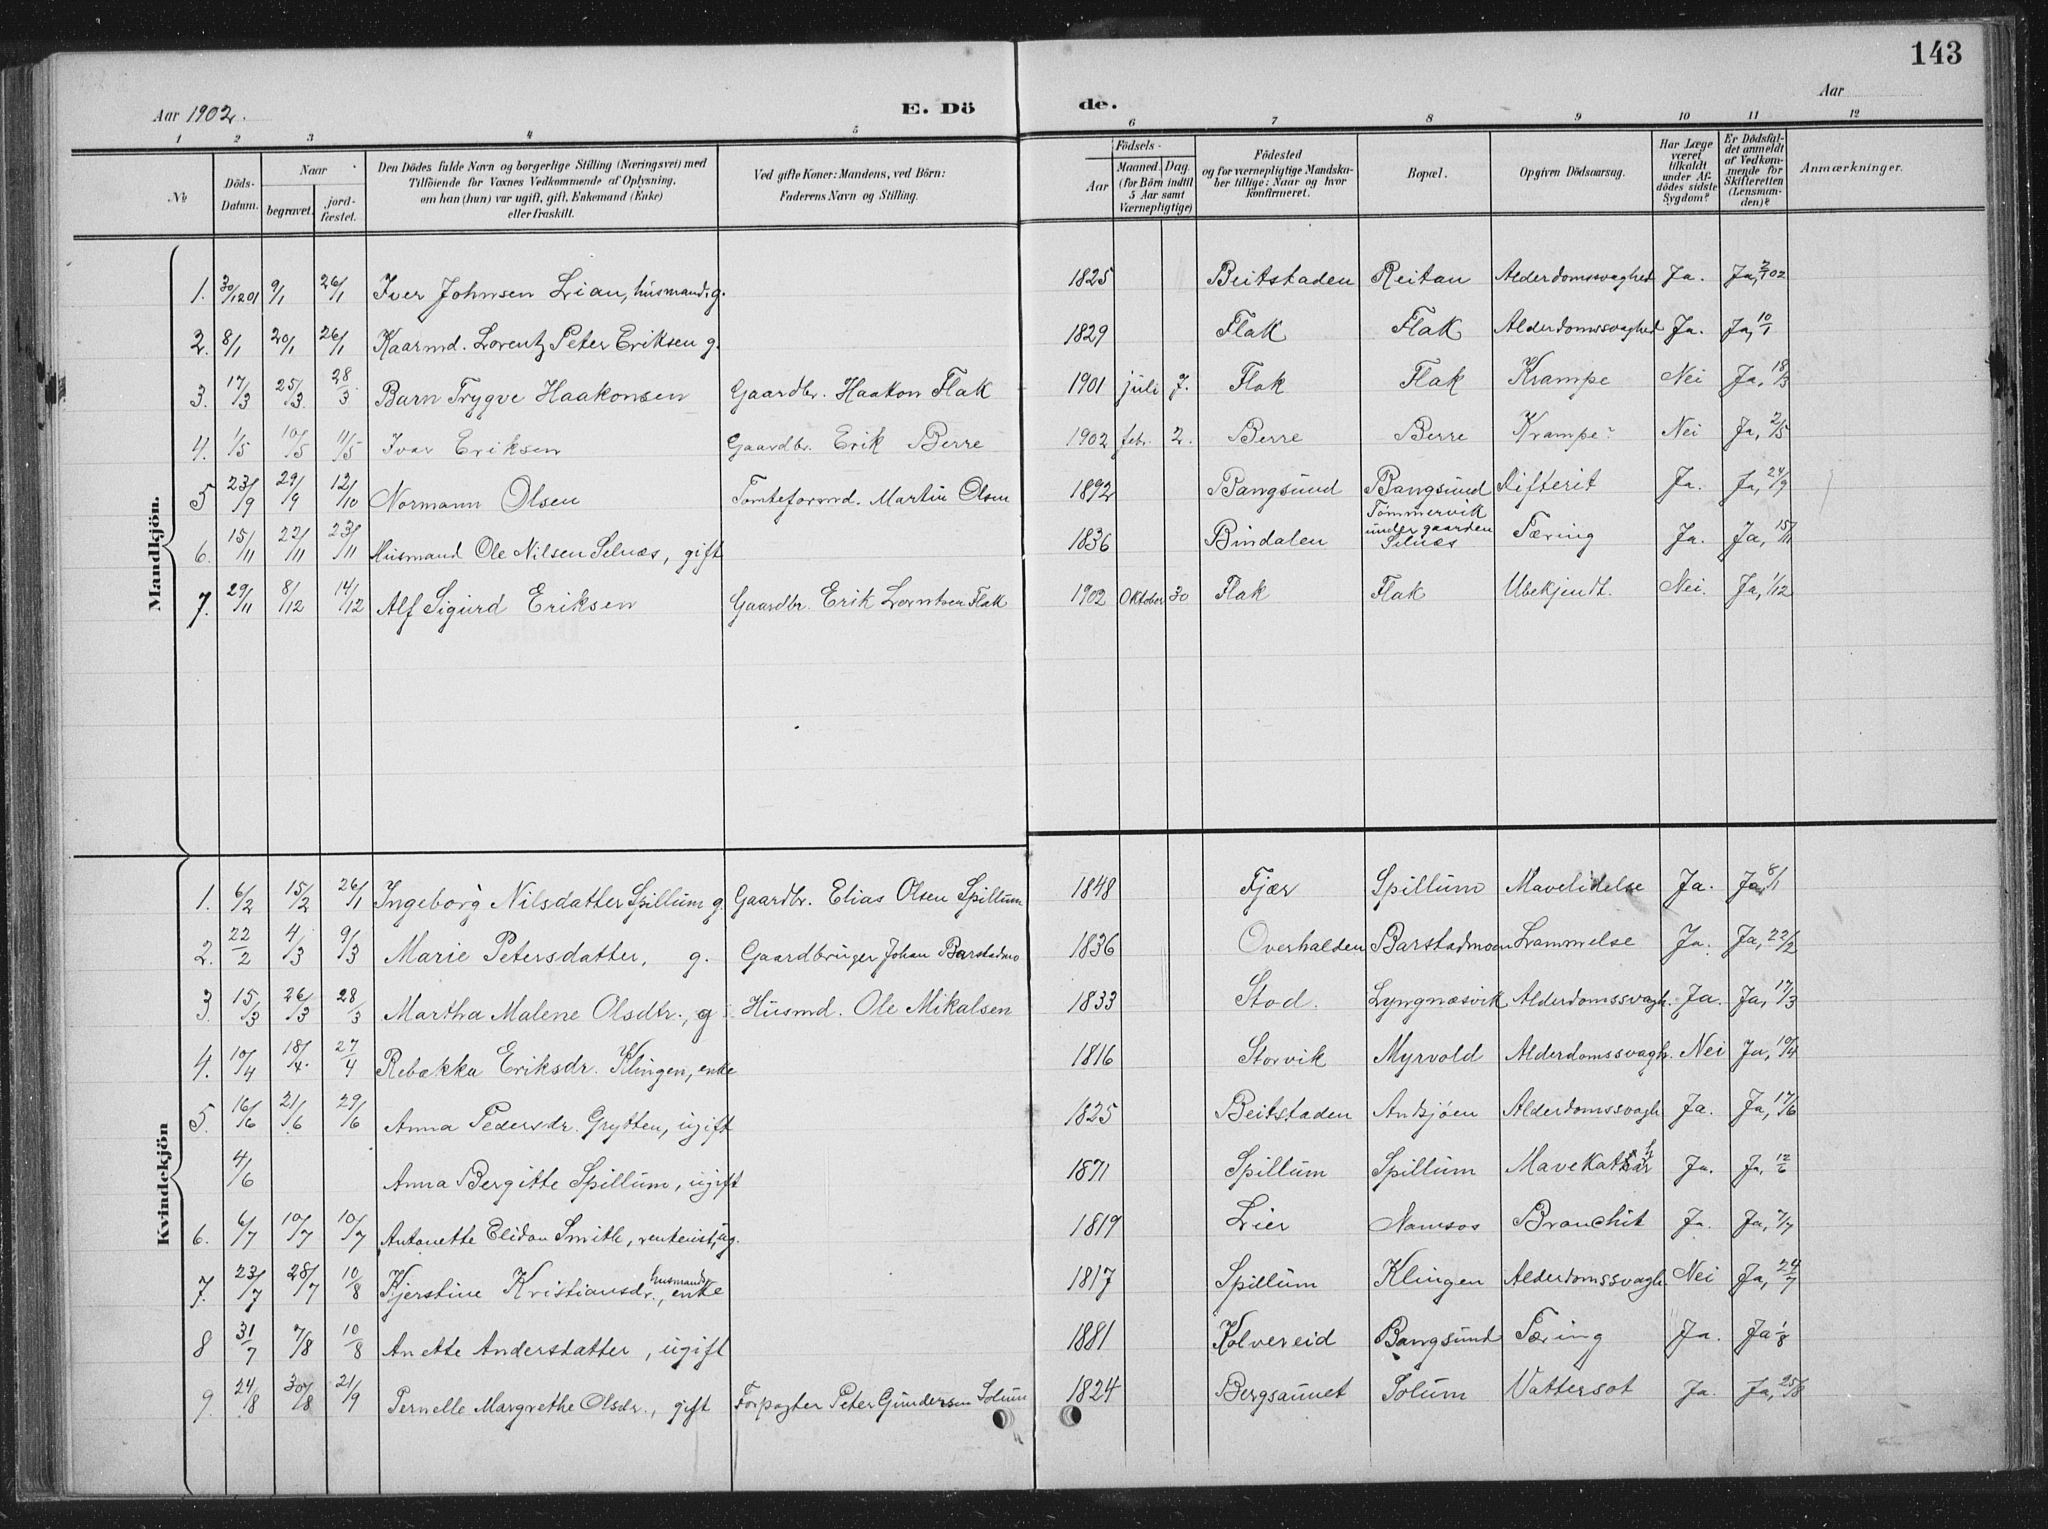 143
Aar 1902.
E. Dö de.
Aar
1 2 3 4 5 6 7 8 9 10 11 12
№
Döds-Datum.
Naar
begravet.
jord-fæstet.
Den Dödes fulde Navn og borgerlige Stilling (Næringsvei) med
Tilföiende for Voxnes Vedkommende af Oplysning,
om han (hun) var ugift, gift, Enkemand (Enke)
eller fraskilt.
Ved gifte Koner: Mandens, ved Börn:
Faderens Navn og Stilling.
Födsels-
Aar
Maaned. Dag.
(for Börn indtil
5 Aar samt
Værnepligtige)
Födested
og for værnepligtige Mandska-
ber tillige: Naar og hvor
konfirmeret.
Bopæl.
Opgiven Dödsaarsag.
Har Læge
været
tilkaldt
under Af-
dödes sidste
Sygdom?
Er Dödsfal-
det anmeldt
af Vedkom-
mende for
Skifteretten
(Lensman-
den)?
Anmærkninger.
Mandkjön.
1. 30/12 01 9/1 26/1 Iver Johnsen Lian, husmand, g. 1825 Beitstaden Reitan Alderdomssvaghed Ja. Ja, 2/1 02
2. 8/1 20/1 26/1 Kaarmd. Lorentz Peter Eriksen g. 1829 Flak Flak Alderdomssvaghed Ja. Ja, 10/1
3. 17/3 25/3 28/3 Barn Trygve Haakonsen Gaardbr. Haakon Flak 1901 juli 7. Flak Flak Krampe Nei Ja, 18/3
4. 1/5 10/5 11/5 Ivar Eriksen Gaardbr. Erik Berre 1902 febr. 2. Berre Berre Krampe? Nei Ja, 2/5
5 23/9 29/9 12/10 Normann Olsen Tomteformd. Martin Olsen 1892 Bangsund Bangsund Difterit Ja. Ja, 24/9
6. 15/11 22/11 23/11 Husmand Ole Nilsen Selnæs, gift 1836 Bindalen Tømmervik under gaarden Selnæs Tæring Ja. Ja, 15/11
7. 29/11 8/12 14/12 Alf Sigurd Eriksen Gaardbr. Erik Lorntsen Flak 1902 Oktober 30 Flak Flak Ubekjendt. Nei. Ja, 1/12
Kvindekjön
1. 6/2 15/2 26/1 Ingeborg Nilsdatter Spillum g. Gaardbr. Elias Olsen Spillum 1848 Fjær Spillum Mavelidelse Ja. Ja, 8/1
2. 22/2 4/3 9/3 Marie Petersdatter, g. Gaardbruger Johan Barstadmo 1836 Overhalden Barstadmoen Lammelse Ja. Ja, 22/2
3. 15/3 26/3 28/3 Martha Malene Olsdtr., g Husmd. Ole Mikalsen 1833 Stod. Lyngnæsvik Alderdomssvagh. Ja. Ja, 17/3
4. 10/4 18/4 27/4 Rebekka Eriksdr. Klingen, enke 1816 Storvik Myrvold Alderdomssvagh. Nei Ja, 10/4
5. 16/6 21/6 29/6 Anna Pedersdr. Grytten, ugift 1825 Beitstaden Alderdomssvagh. Ja. Ja, 17/6
4/6 Anna Bergitte Spillum, ugift 1871 Spillum Spillum Ja. Ja, 12/6
6. 6/7 10/7 10/7 Antonette Elidon Smith, rentenist, ug. 1819 Lier Namsos Bronchit Ja. Ja, 7/7
7. 23/7 28/7 10/8 Kjerstine Kristiansdr., husmands enke 1817 Spillum Klingen Alderdomssvagh. Nei Ja, 24/7
8 31/7 7/8 10/8 Anette Anderstatter, ugift 1881 Kolvereid Bangsund Tæring Ja. Ja 1/8
9. 24/8 30/8 21/9 Pernelle Margrethe Olsdr., gift Forpagter Peter Gundersen Solum 1824 Bergsaunet Solum Vattersot Ja. Ja, 25/8